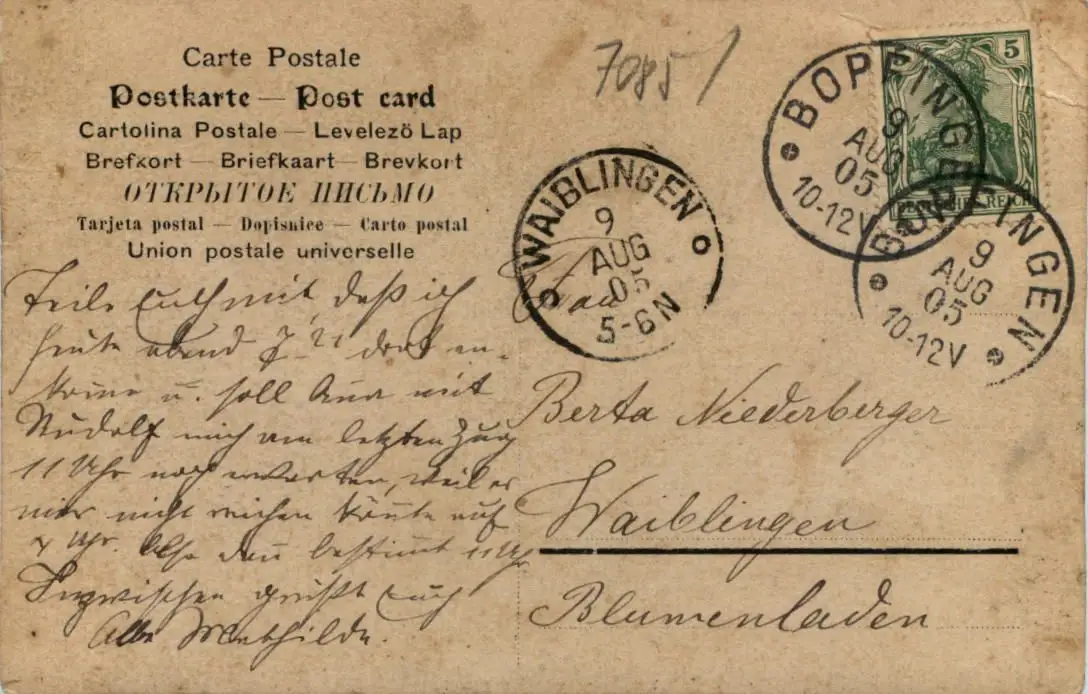 Carte Postale
Postkarte — Post card
Cartolina Postale — Levelező Lap
Brefkort — Briefkaart — Brevkort
ОТКРЫТОЕ ПИСЬМО
Tarjeta postal — Dopisnice — Carto postal
Union postale universelle
7085/
5
DEUTSCHES REICH
BOPFINGEN
9
AUG
05
10-12V
BOPFINGEN
9
AUG
05
10-12V
WAIBLINGEN
9
AUG
05
5-6N
Teile Euch mit daß ich
heute abend 7 dort an-
komme u. soll Anna mit
Rudolf mich am letzten Zug
11 Uhr noch erwarten, weil es
mir nicht reichen könnte auf
7 Uhr. Also dann bestimmt 11 Uhr
Inzwischen grüßt Euch
Alle Mathilde.
Frau
Berta Niederberger
Waiblingen
Blumenladen